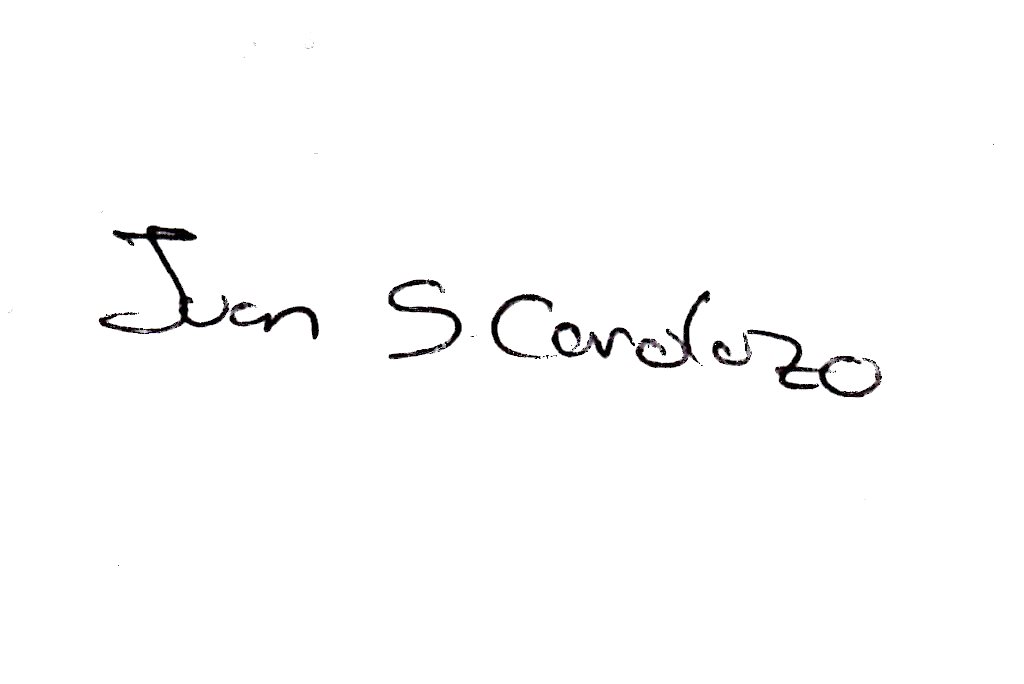 Juan S Cardozo